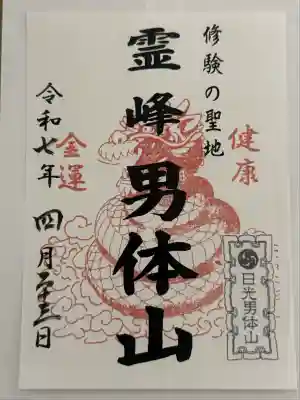 修験の聖地
健康
霊峰男体山
金運
令和七年 四月二十三日
日光男体山